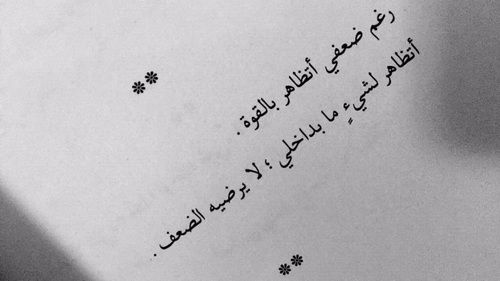 **
رغم ضعفي أتظاهر بالقوة .
أتظاهر لشيءٍ ما بداخلي ؛ لا يرضيه الضعف .
**